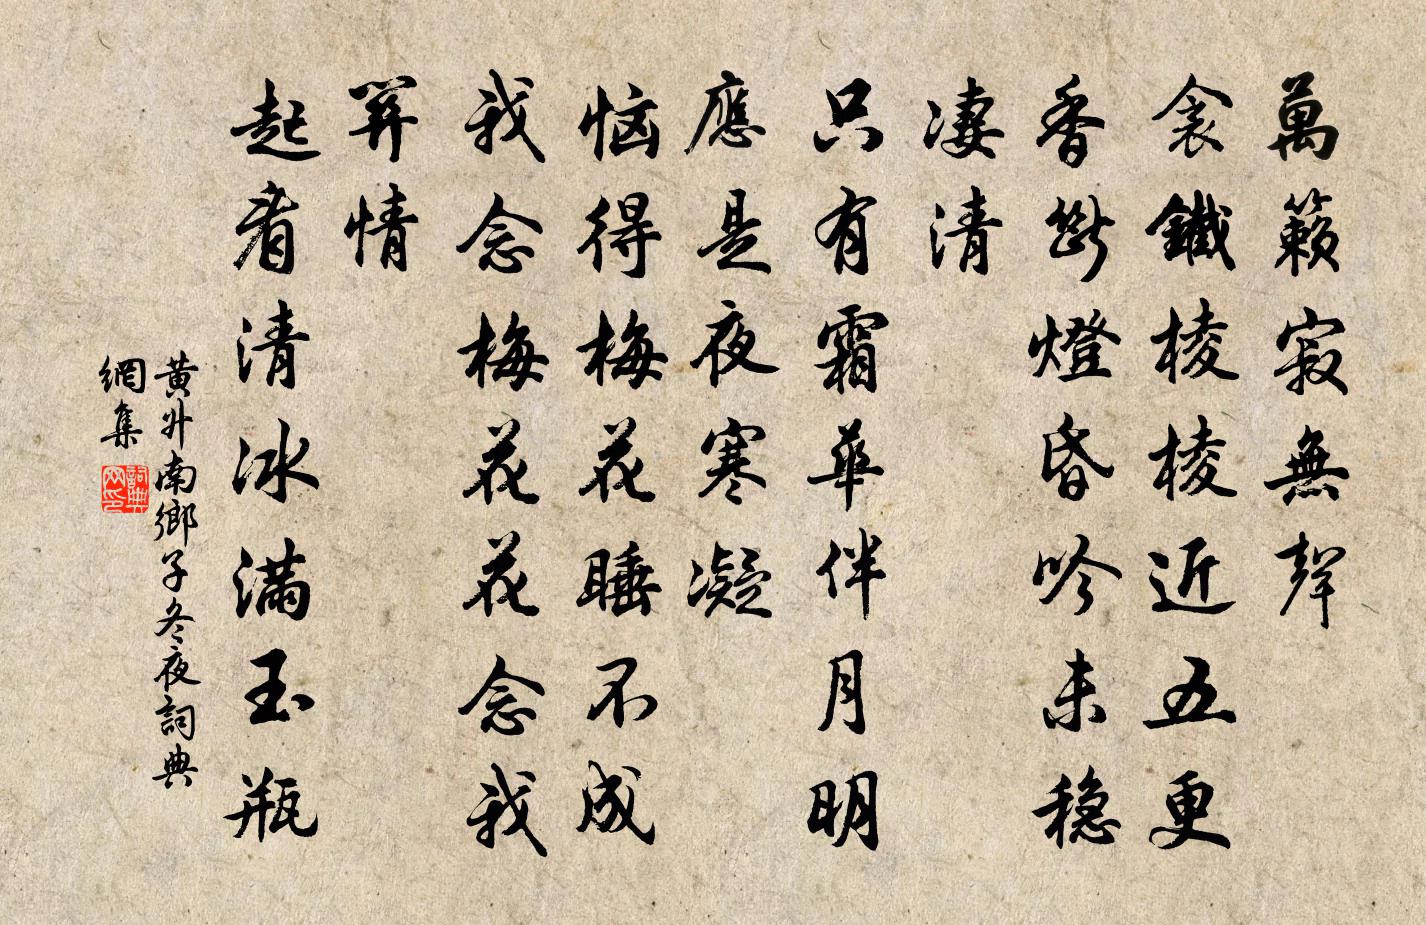 萬籟寂無聲
衾鐵棱棱近五更
香斷燈昏吟未穩
凄清
只有霜華伴月明
應是夜寒凝
惱得梅花睡不成
我念梅花花念我
關情
起看清冰滿玉瓶
黃升南鄉子冬夜詞典
網集
詞典
网印